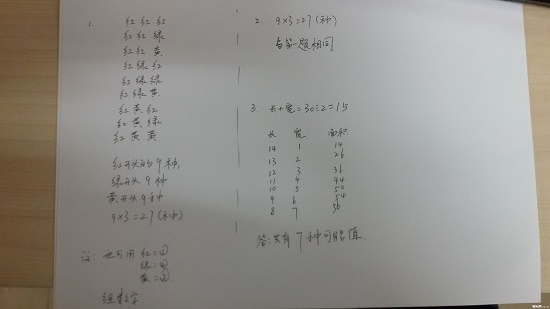 1.
红 红 红
红 红 绿
红 红 黄
红 绿 红
红 绿 绿
红 绿 黄
红 黄 红
红 黄 绿
红 黄 黄
红开头的9种,
绿开头9种
黄开头9种
9×3=27(种)
注: 也可用 红=①
绿=②
黄=③
组数字
2. 9×3=27(种)
与第一题相同
3. 长+宽=30÷2=15
长 宽 面积
14 1 14
13 2 26
12 3 36
11 4 44
10 5 50
9 6 54
8 7 56
答:共有7种可能值.